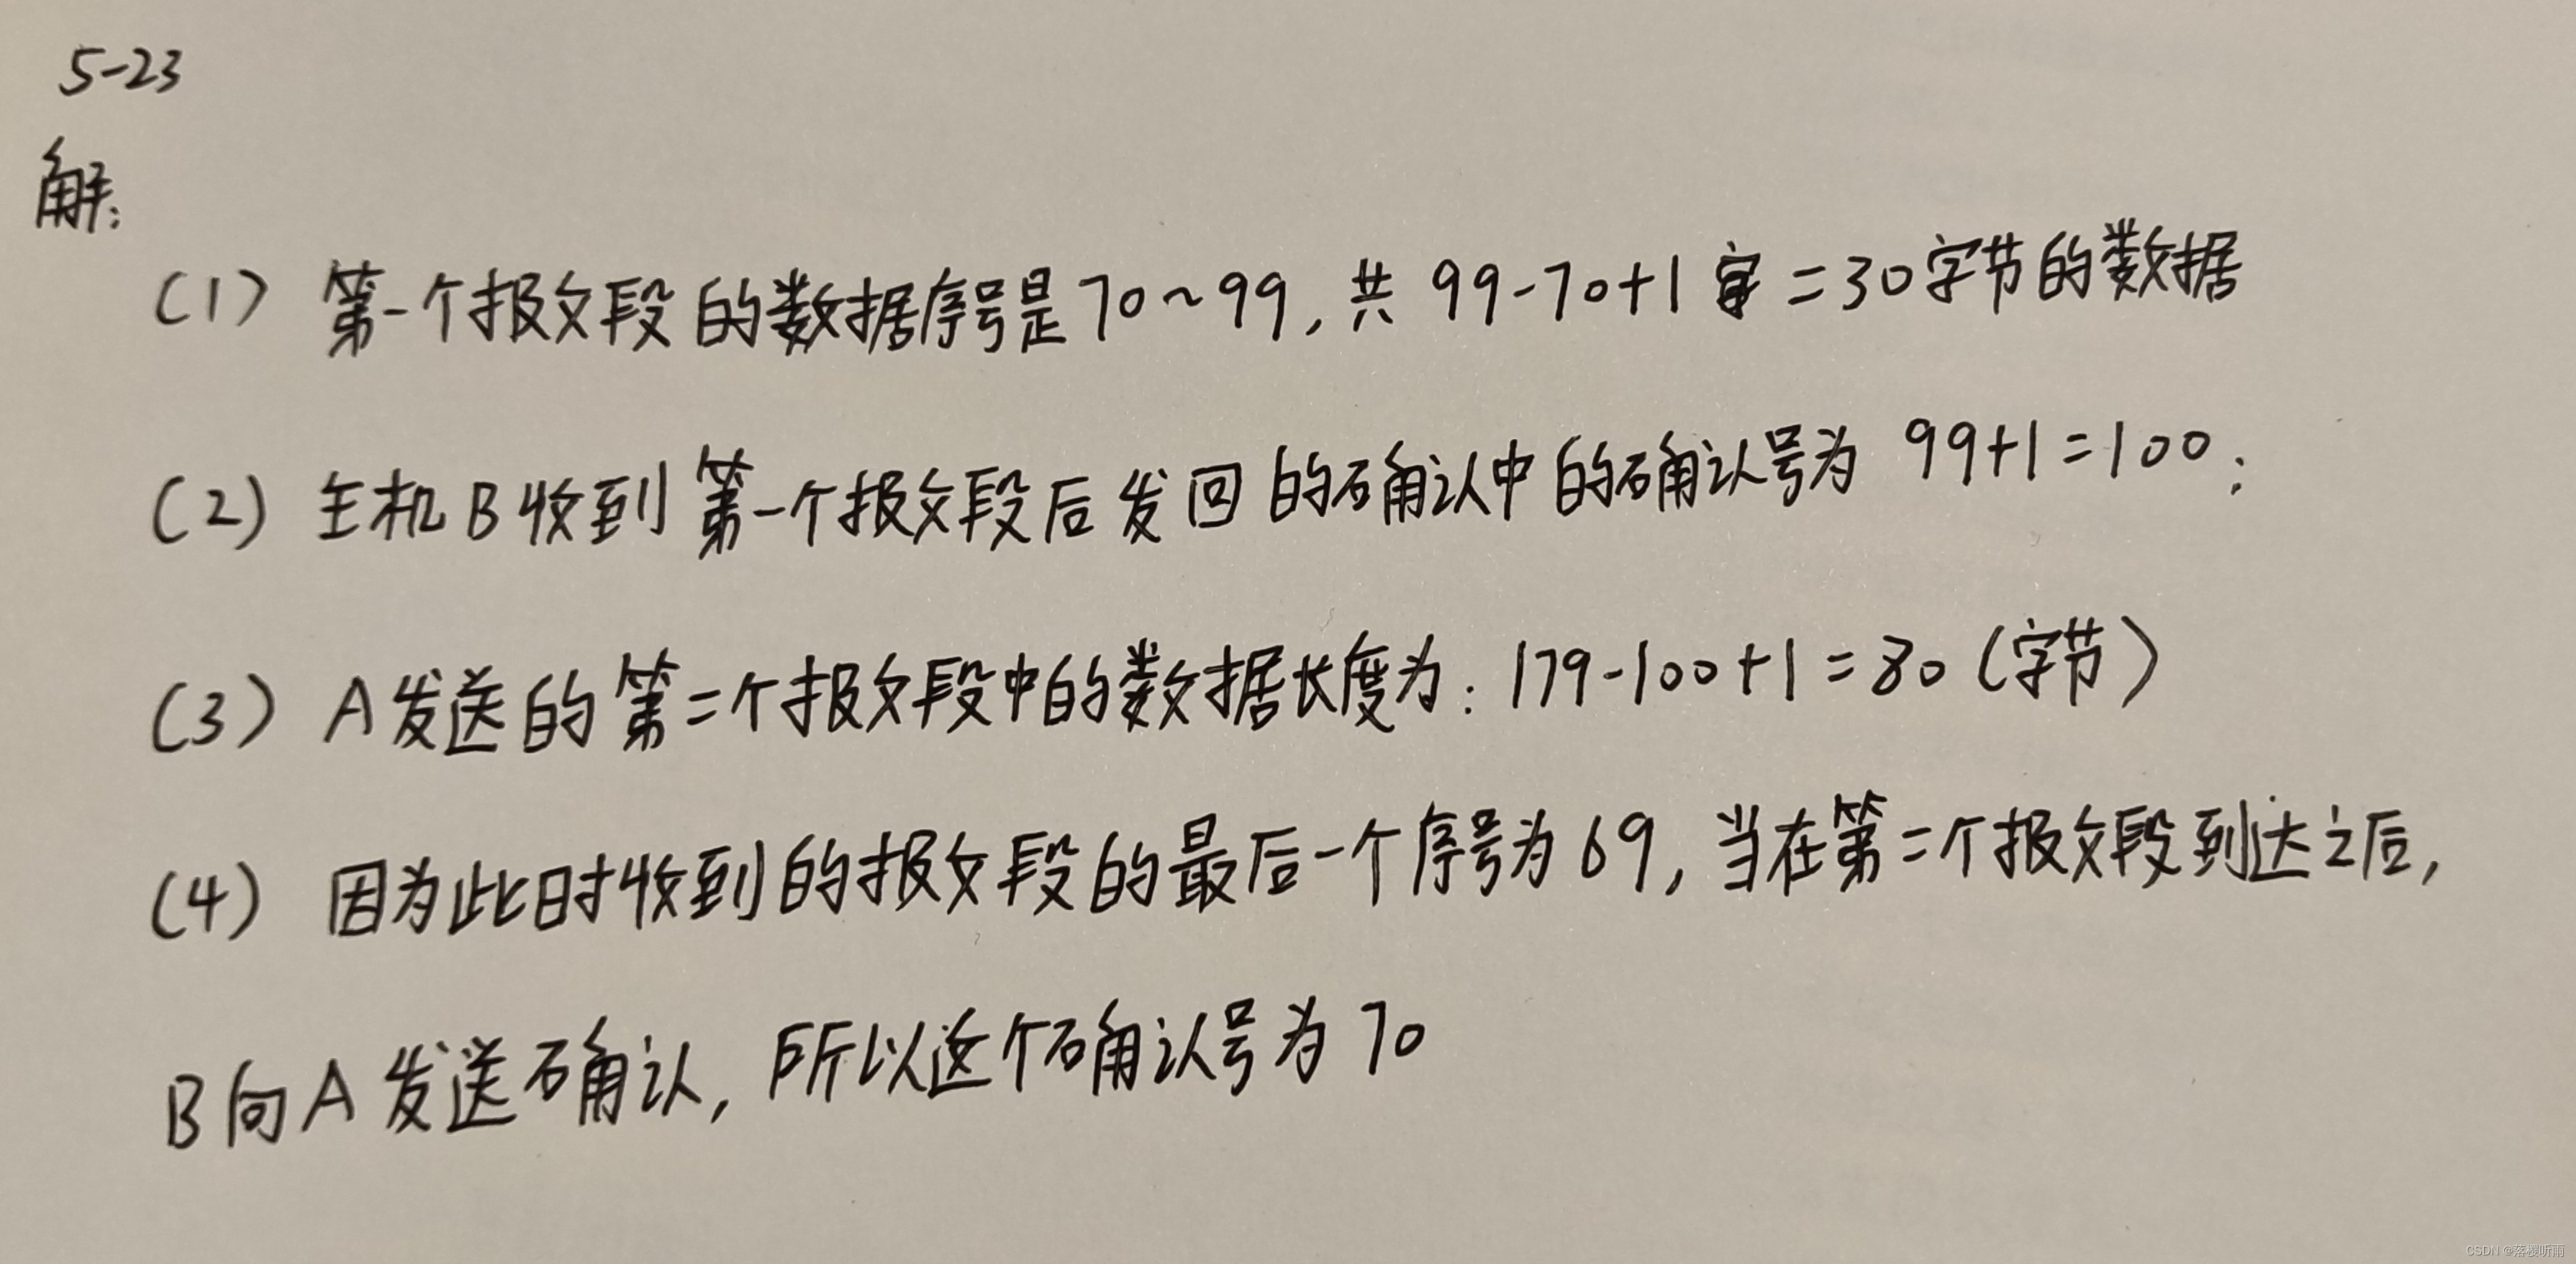 5-23
解:
(1) 第一个报文段的数据序号是70~99, 共 99-70+1 =30字节的数据
(2) 主机B收到第一个报文段后发回的确认中的确认号为 99+1=100;
(3) A发送的第二个报文段中的数据长度为: 179-100+1=80 (字节)
(4) 因为此时收到的报文段的最后一个序号为69, 当在第二个报文段到达之后,
B向A发送确认, 所以这个确认号为70
CSDN @落樱听雨